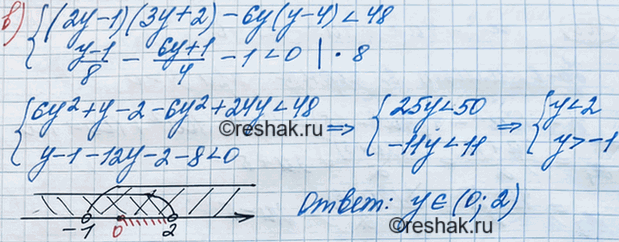 в) { (2y-1)(3y+2) - 6y(y-4) < 48
{ (y-1)/8 - (6y+1)/4 - 1 < 0 | · 8
{ 6y² + y - 2 - 6y² + 24y < 48 ⇒ { 25y < 50 ⇒ { y < 2
{ y - 1 - 12y - 2 - 8 < 0 { -11y < 11 { y > -1
©reshak.ru
-1 0 2
Ответ: y ∈ (0; 2)
©reshak.ru